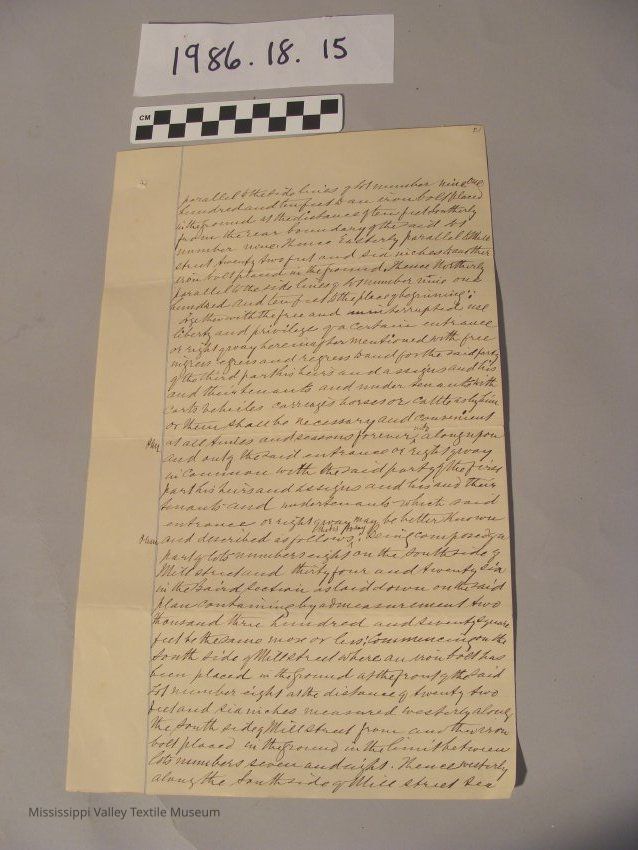 1986.18.15
CM
parallel to the side lines of lot number nine one
hundred and ten feet to an iron bolt placed
in the ground at the distance of ten feet Southerly
from the rear boundary of the said lot
number nine Thence Easterly parallel to Mill
street twenty two feet and six inches to another
iron bolt placed in the ground Thence Northerly
parallel to the side lines of lot number nine one
hundred and ten feet to the place of beginning:
Together with the free and uninterrupted use
liberty and privilege of a certain entrance
or right of way hereinafter mentioned with free
ingress egress and regress to and for the said party
of the third part his heirs and assigns and his
and their tenants and under tenants with
carts vehicles carriages horses or cattle as by him
or them shall be necessary and convenient
at all times and seasons forever into along upon
and out of the said entrance or right of way
in common with the said party of the first
part his heirs and assigns and his and their
tenants and undertenants which said
entrance or right of way may be better known
and described as follows: Being composed of a
part of lots numbers eight on the South side of
Mill street and thirty four and twenty six
in the Baird Section as laid down on the said
plan containing by admeasurement two
thousand three hundred and seventy square
feet be the same more or less: Commencing on the
South side of Mill street where an iron bolt has
been placed in the ground at the front of the said
Lot number eight at the distance of twenty two
feet and six inches measured westerly along
the South side of Mill Street from another iron
bolt placed in the ground in the limit between
lots numbers seven and eight. Thence westerly
along the South side of Mill Street Six
Mississippi Valley Textile Museum